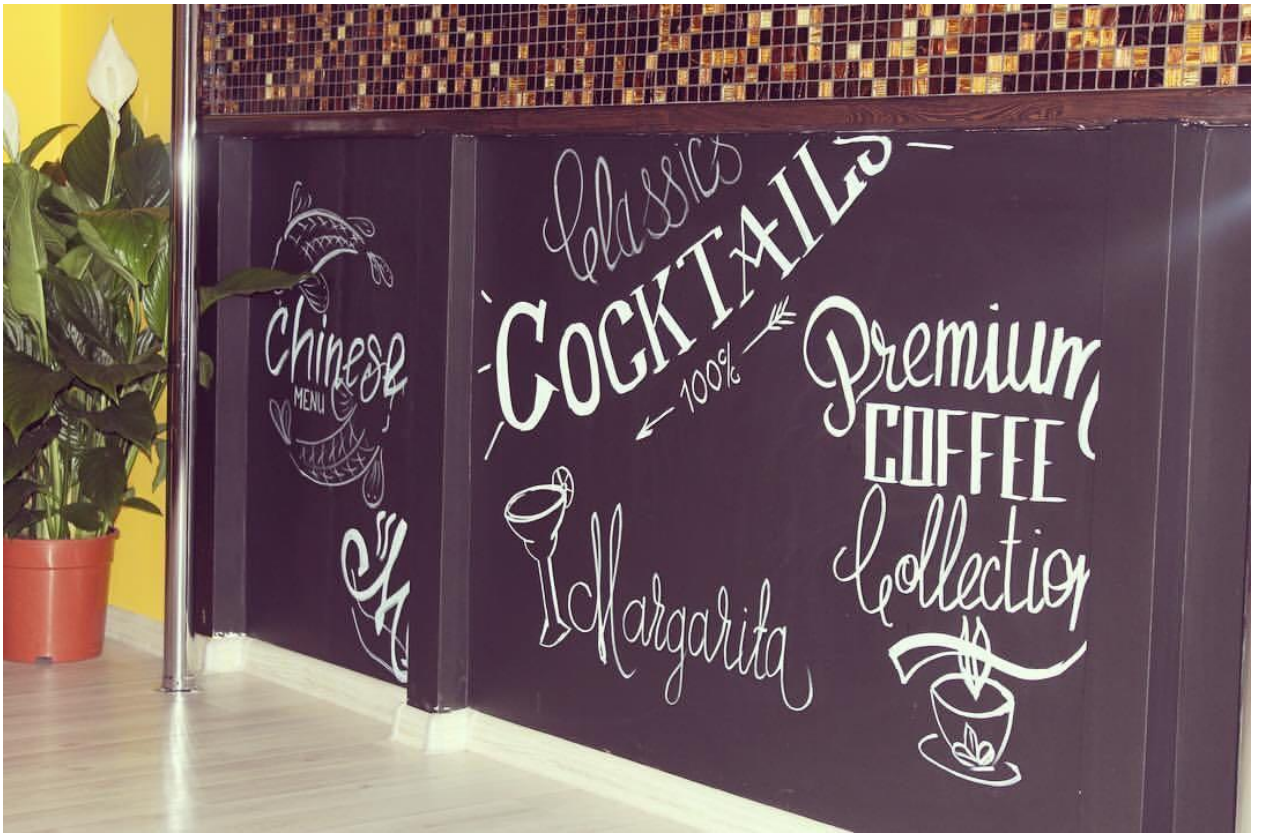 Chinese
MENU
Classics
COCKTAILS
100%
Margarita
Premium
COFFEE
Collection